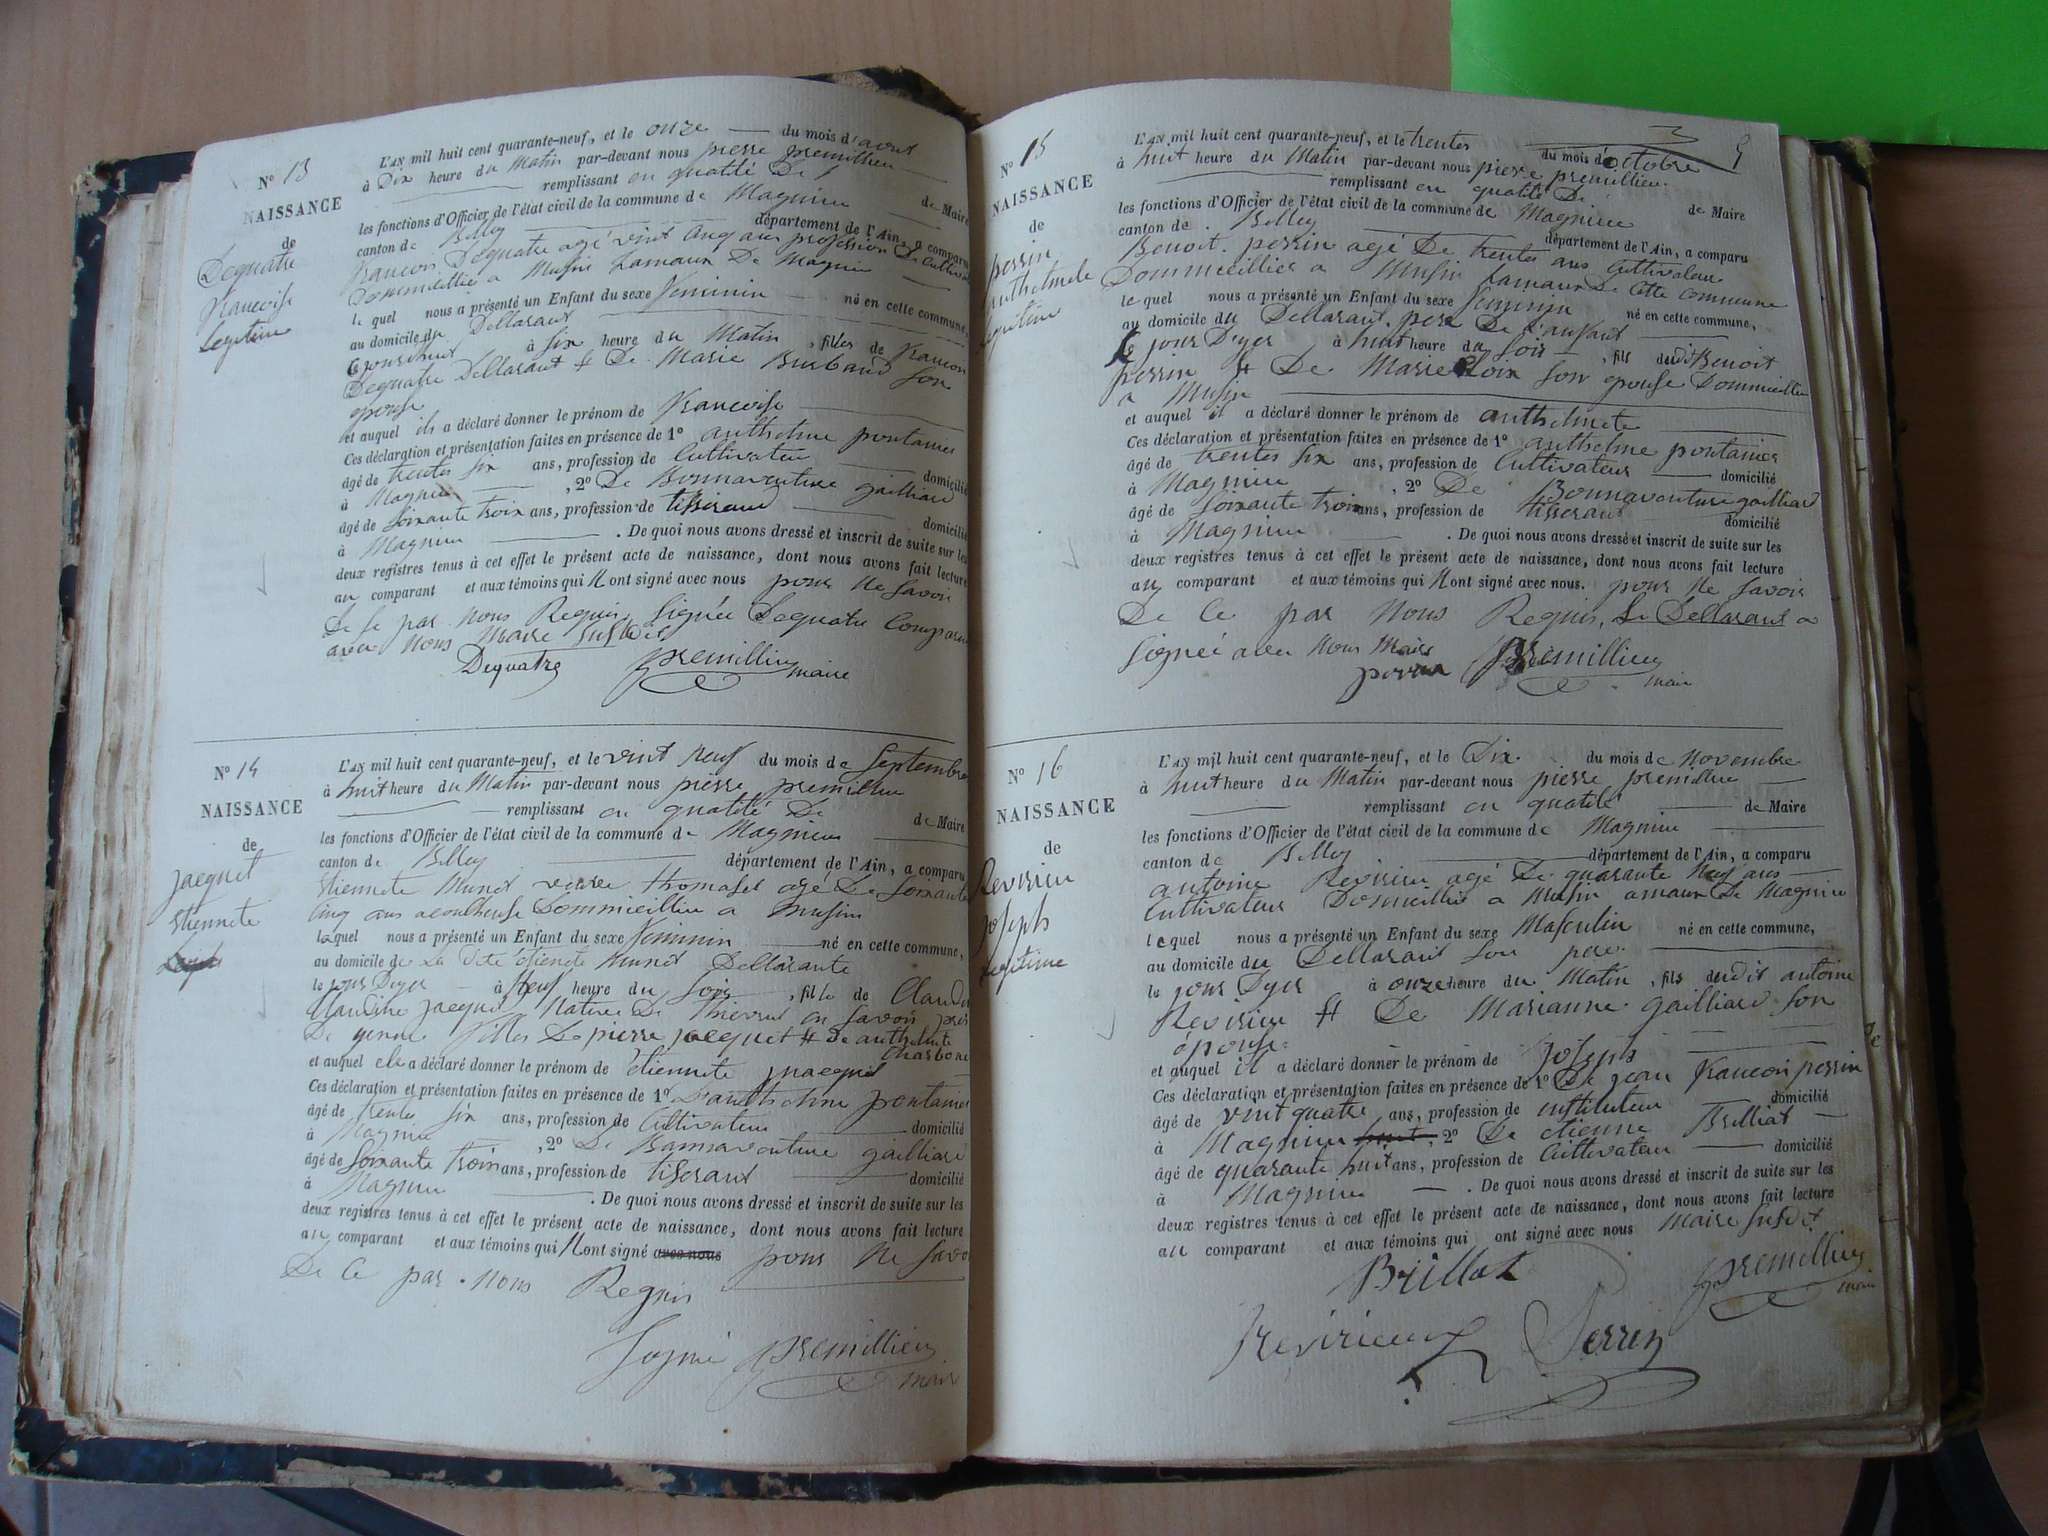 N° 13
NAISSANCE
de
Dequatre
francoise
Legitime
L'AN mil huit cent quarante-neuf, et le onze du mois d'aout
à Dix heure du Matin par-devant nous pierre premillieu
remplissant en qualité De
les fonctions d'Officier de l'état civil de la commune de Magnieu de Maire
canton de Belley département de l'Ain, a comparu
francois Dequatre agé vint cinq ans profession De Cultivateur
Dommeillié a Musin hamaux De Magnieu
le quel nous a présenté un Enfant du sexe feminin né en cette commune,
au domicile du Dellarant
à six heure du Matin, filles de francois
Dequatre Dellarant & De Marie Burbaud son
epouse
et auquel ils a déclaré donner le prénom de francoise
Ces déclaration et présentation faites en présence de 1° anthelme pontanier
âgé de trentes six ans, profession de Cultivateur domicilié
à Magnieu, 2° De Bonnaventure gailliard
âgé de soixante troix ans, profession de tisserand domicilié
à Magnieu. De quoi nous avons dressé et inscrit de suite sur les
deux registres tenus à cet effet le présent acte de naissance, dont nous avons fait lecture
au comparant et aux témoins qui N'ont signé avec nous pour ne savoir
De ce par nous Requis, signée Dequatre Comparant
avec nous Maire susdit
Dequatre premillieu maire
N° 14
NAISSANCE
de
jacquet
Etiennete
L'AN mil huit cent quarante-neuf, et le vint neuf du mois de Septembre
à huit heure du Matin par-devant nous pierre premillieu
remplissant en qualité De
les fonctions d'Officier de l'état civil de la commune de Magnieu de Maire
canton de Belley département de l'Ain, a comparu
Etiennete Munet veuve thomasset agé De soixante
cinq ans acoucheuse Dommeillié a Musin
laquel nous a présenté un Enfant du sexe feminin né en cette commune,
au domicile de La Dite étienete Munet Dellarante
le jour Dyer à Neuf heure du soir, fille de Claudi
Claudine jacquet Native De en savoi près
De yenne filles De pierre jacquet & de anthelmete
Charbon
et auquel ele a déclaré donner le prénom de étiennete jnacquet
Ces déclaration et présentation faites en présence de 1° D'anthelme pontanier
âgé de trentes six ans, profession de Cultivateur domicilié
à Magnieu, 2° De Bonnaventure gailliard
âgé de soixante troix ans, profession de tisserant domicilié
à Magnieu. De quoi nous avons dressé et inscrit de suite sur les
deux registres tenus à cet effet le présent acte de naissance, dont nous avons fait lecture
au comparant et aux témoins qui N'ont signé avec nous pour ne savoi
De ce par nous Requis
Signé premillieu
maire
3
N° 15
NAISSANCE
de
perrin
anthelmete
legitime
L'AN mil huit cent quarante-neuf, et le trentes du mois d'octobre
à huit heure du Matin par-devant nous piere premillieu
remplissant en qualité De
les fonctions d'Officier de l'état civil de la commune de Magnieu de Maire
canton de Belley département de l'Ain, a comparu
Benoit perrin agé De trentes ans Cultivateur
Dommicillier a Musin hamaux De Cette commune
le quel nous a présenté un Enfant du sexe feminin né en cette commune,
au domicile du Dellarant, pere De l'anfant
le jour Dyer à huit heure du soir, fils dudit Benoit
perrin & De Marie Loix son epouse Dommicillié
a Musin
et auquel il a déclaré donner le prénom de anthelmete
Ces déclaration et présentation faites en présence de 1° anthelme pontanier
âgé de trentes six ans, profession de Cultivateur domicilié
à Magnieu, 2° De Bonnaventure gailliard
âgé de soixante troix ans, profession de tisserant domicilié
à Magnieu. De quoi nous avons dressé et inscrit de suite sur les
deux registres tenus à cet effet le présent acte de naissance, dont nous avons fait lecture
au comparant et aux témoins qui N'ont signé avec nous. pour ne savoir
De ce par nous Requis, Le Dellarant a
signée avec nous Maire
perrin premillieu
mair
N° 16
NAISSANCE
de
Revirieu
joseph
legitime
L'AN mil huit cent quarante-neuf, et le Dix du mois de Novembre
à huit heure du Matin par-devant nous pierre premillieu
remplissant en qualité de Maire
les fonctions d'Officier de l'état civil de la commune de Magnieu
canton de Belley département de l'Ain, a comparu
antoine Revirieu agé De quarante Neuf ans
Cultivateur Domicillié a Musin amaux De Magnieu
le quel nous a présenté un Enfant du sexe Masculin né en cette commune,
au domicile du Dellarant son pere
le jour Dyer à onze heure du Matin, fils dudit antoine
Revirieu & De Marianne gailliard son
épouse
et auquel il a déclaré donner le prénom de joseph
Ces déclaration et présentation faites en présence de 1° De jean francois perrin
âgé de vint quatre ans, profession de instituteur domicilié
à Magnieu, 2° De étienne Brilliat
âgé de quarante huit ans, profession de Cultivateur domicilié
à Magnieu. De quoi nous avons dressé et inscrit de suite sur les
deux registres tenus à cet effet le présent acte de naissance, dont nous avons fait lecture
au comparant et aux témoins qui ont signé avec nous Maire susdit
Brillat premillieu
mair
Revirieux Perrin